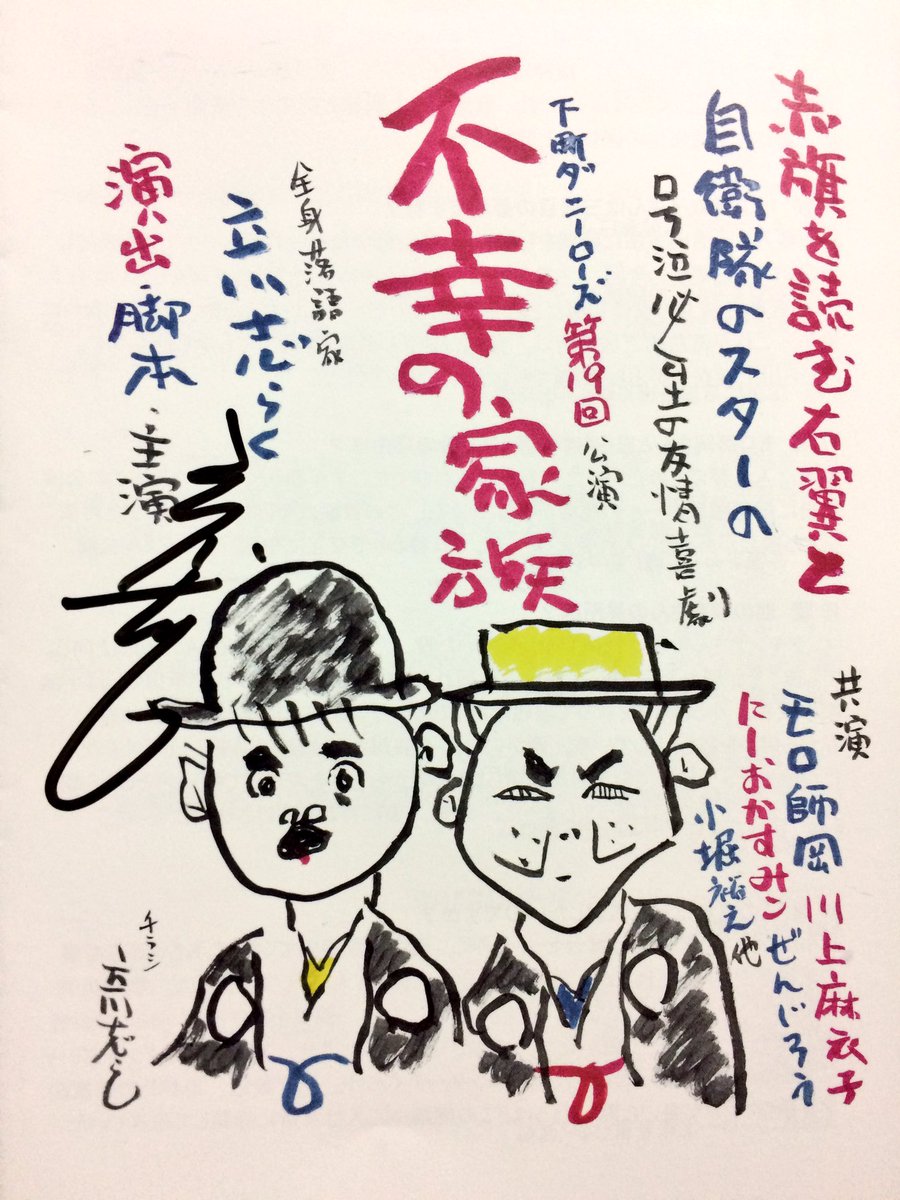 赤旗を読む右翼と
自衛隊のスターの
号泣必至の友情喜劇
下町ダニーローズ第19回公演
不幸の家族
全身落語家
立川志らく
演出・脚本・主演
共演
モロ師岡 川上麻衣子
にしおかすみこ ぜんじろう
小堀裕之 他
チラシ